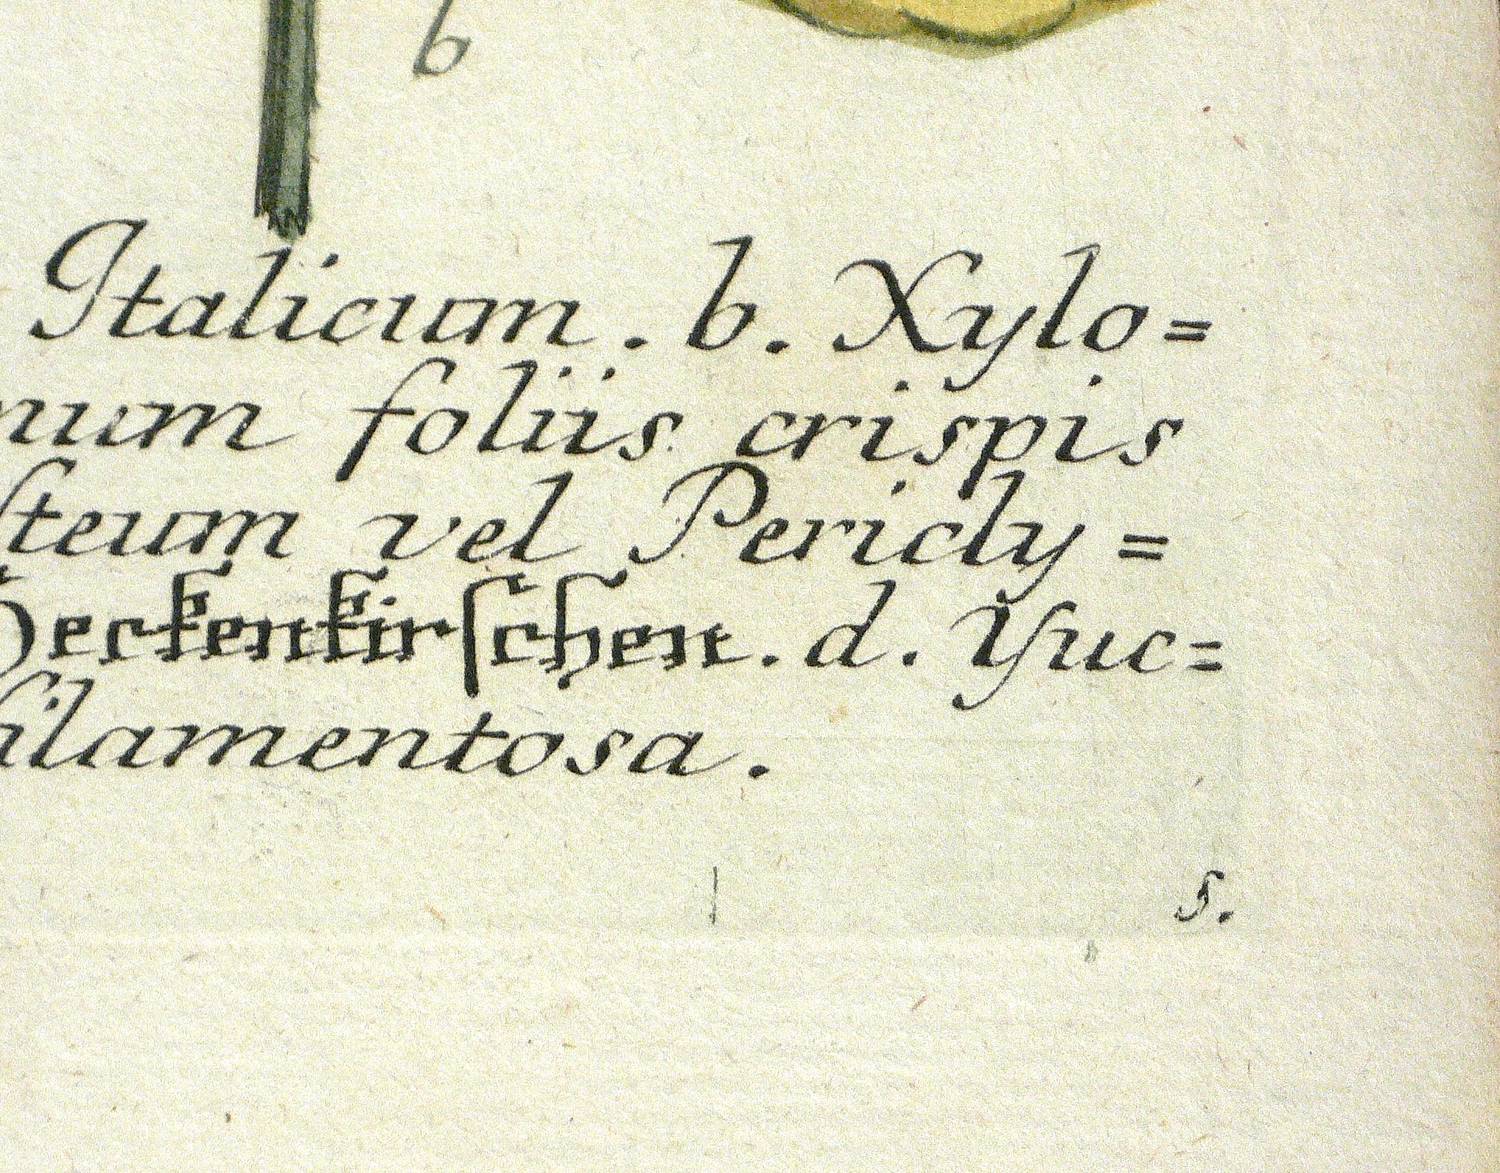 b
Italicum. b. Xylo=
num foliis crispis
steum vel Pericly=
Heckenkirschen. d. Yuc=
filamentosa.
s.